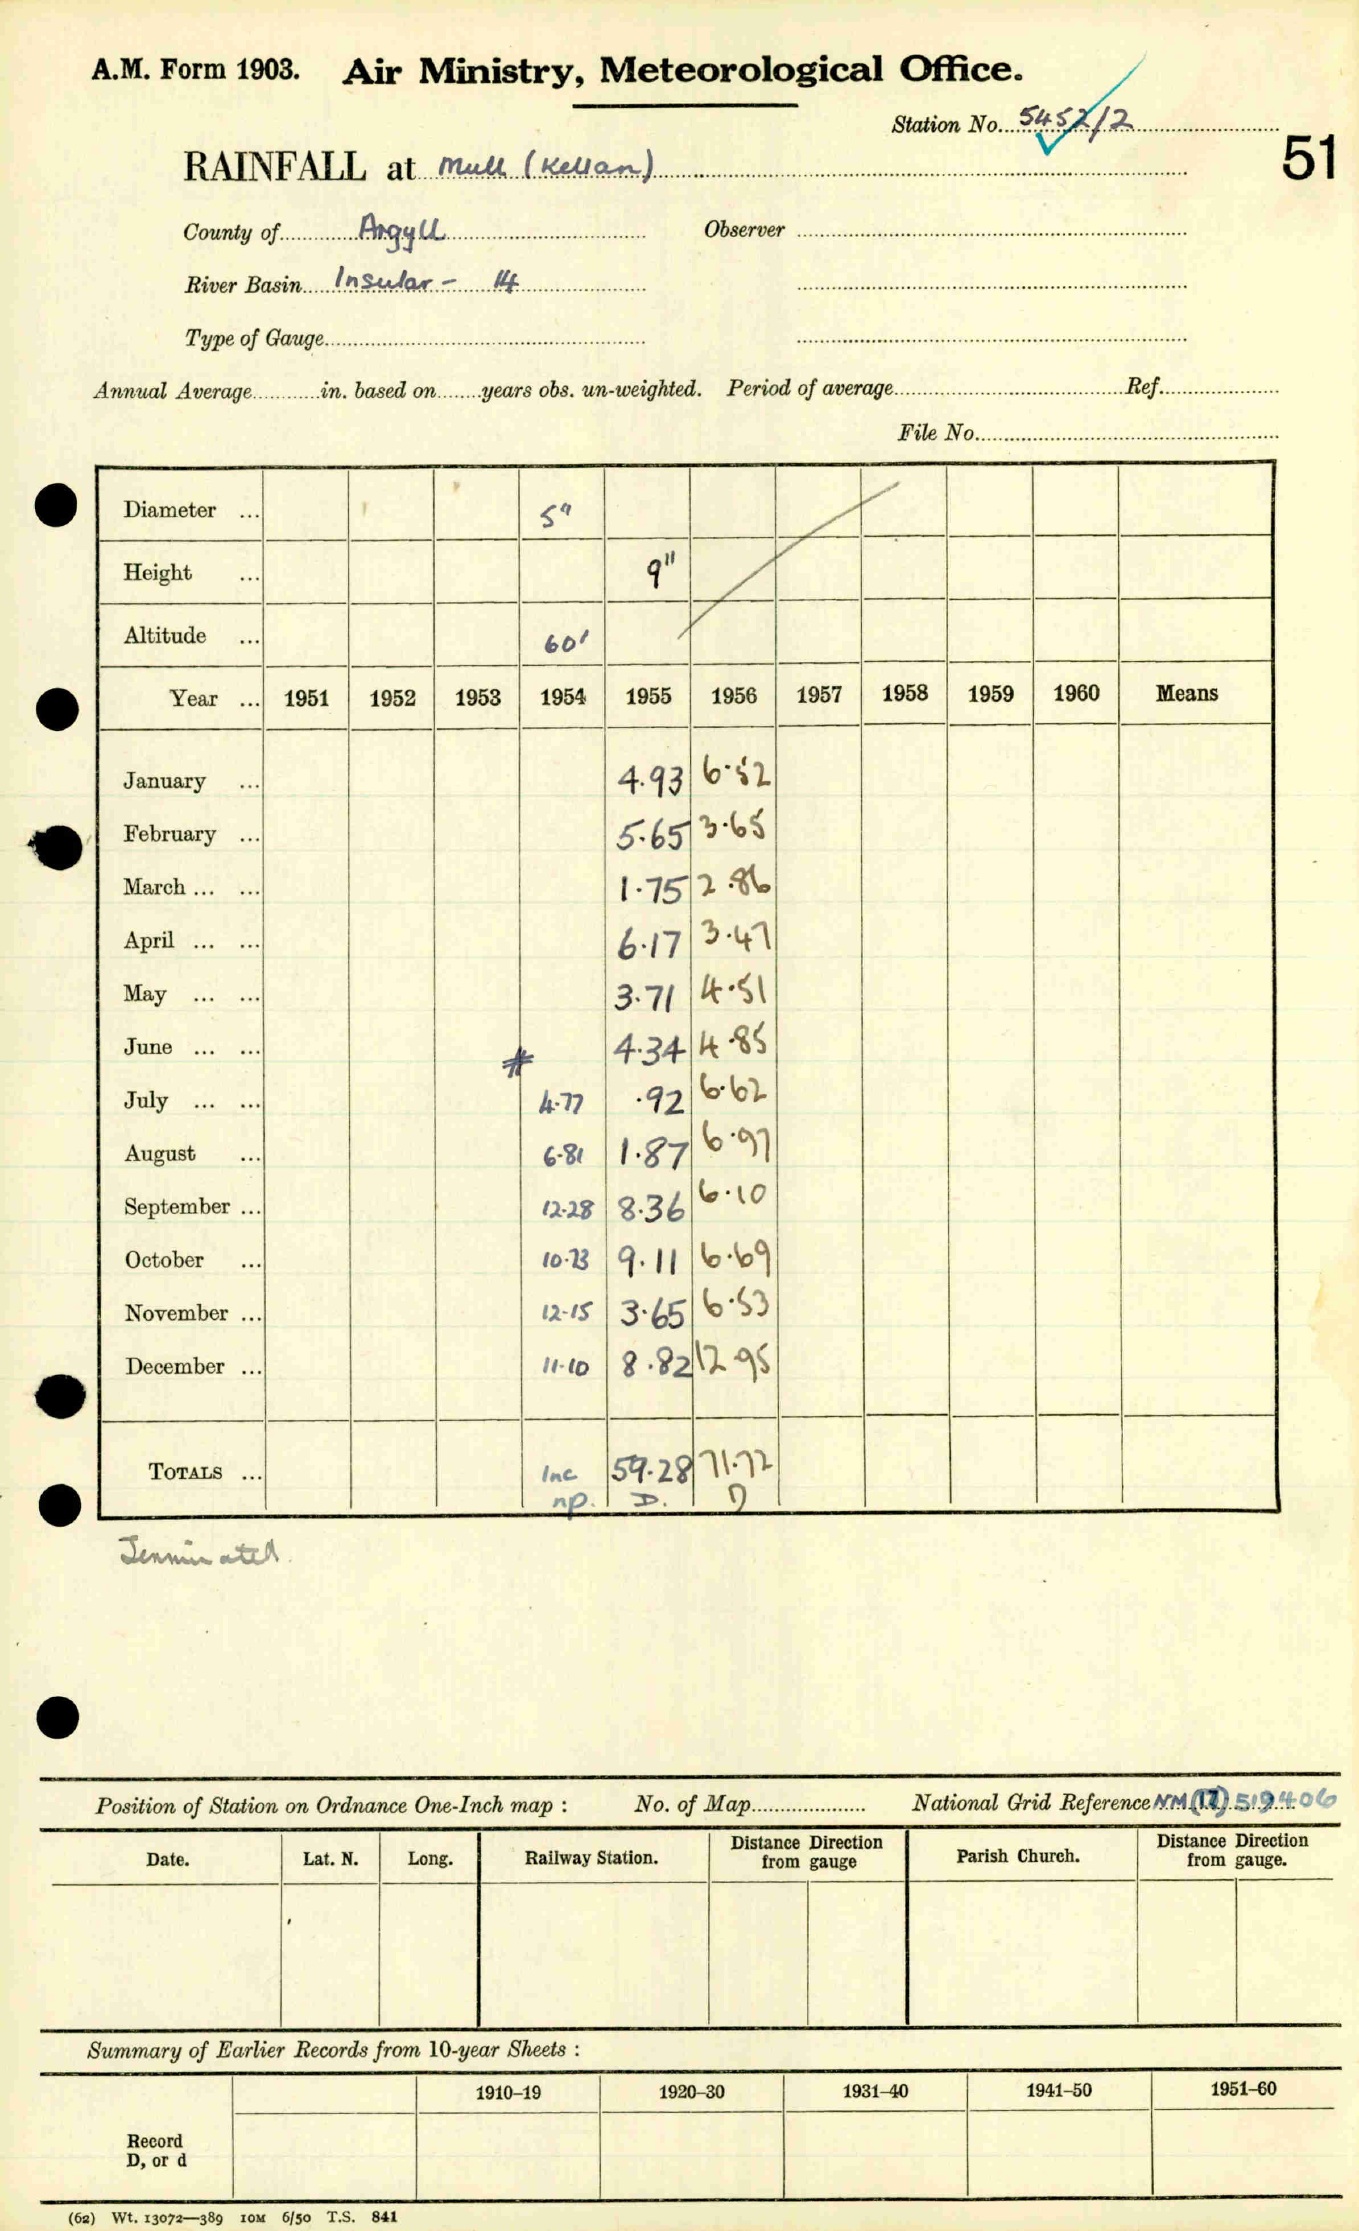 A.M. Form 1903. Air Ministry, Meteorological Office.
Station No. 5452/2
51
RAINFALL at Mull (Kellan)
County of Argyll Observer
River Basin Insular - 14
Type of Gauge
Annual Average in. based on years obs. un-weighted. Period of average Ref.
File No.
Diameter ... 5"
Height ... 9"
Altitude ... 60'
Year ... 1951 1952 1953 1954 1955 1956 1957 1958 1959 1960 Means
January ... 4.93 6.52
February ... 5.65 3.65
March ... ... 1.75 2.86
April ... ... 6.17 3.47
May ... ... 3.71 4.51
June ... ... # 4.34 4.85
July ... ... 4.77 .92 6.62
August ... 6.81 1.87 6.97
September ... 12.28 8.36 6.10
October ... 10.73 9.11 6.69
November ... 12.15 3.65 6.53
December ... 11.10 8.82 12.95
TOTALS ... Inc 59.28 71.72
np. D. D
Terminated.
Position of Station on Ordnance One-Inch map : No. of Map National Grid Reference NM (17) 519406
Date. Lat. N. Long. Railway Station. Distance Direction from gauge Parish Church. Distance Direction from gauge.
Summary of Earlier Records from 10-year Sheets :
1910–19 1920–30 1931–40 1941–50 1951–60
Record
D, or d
(62) Wt. 13072—389 10M 6/50 T.S. 841